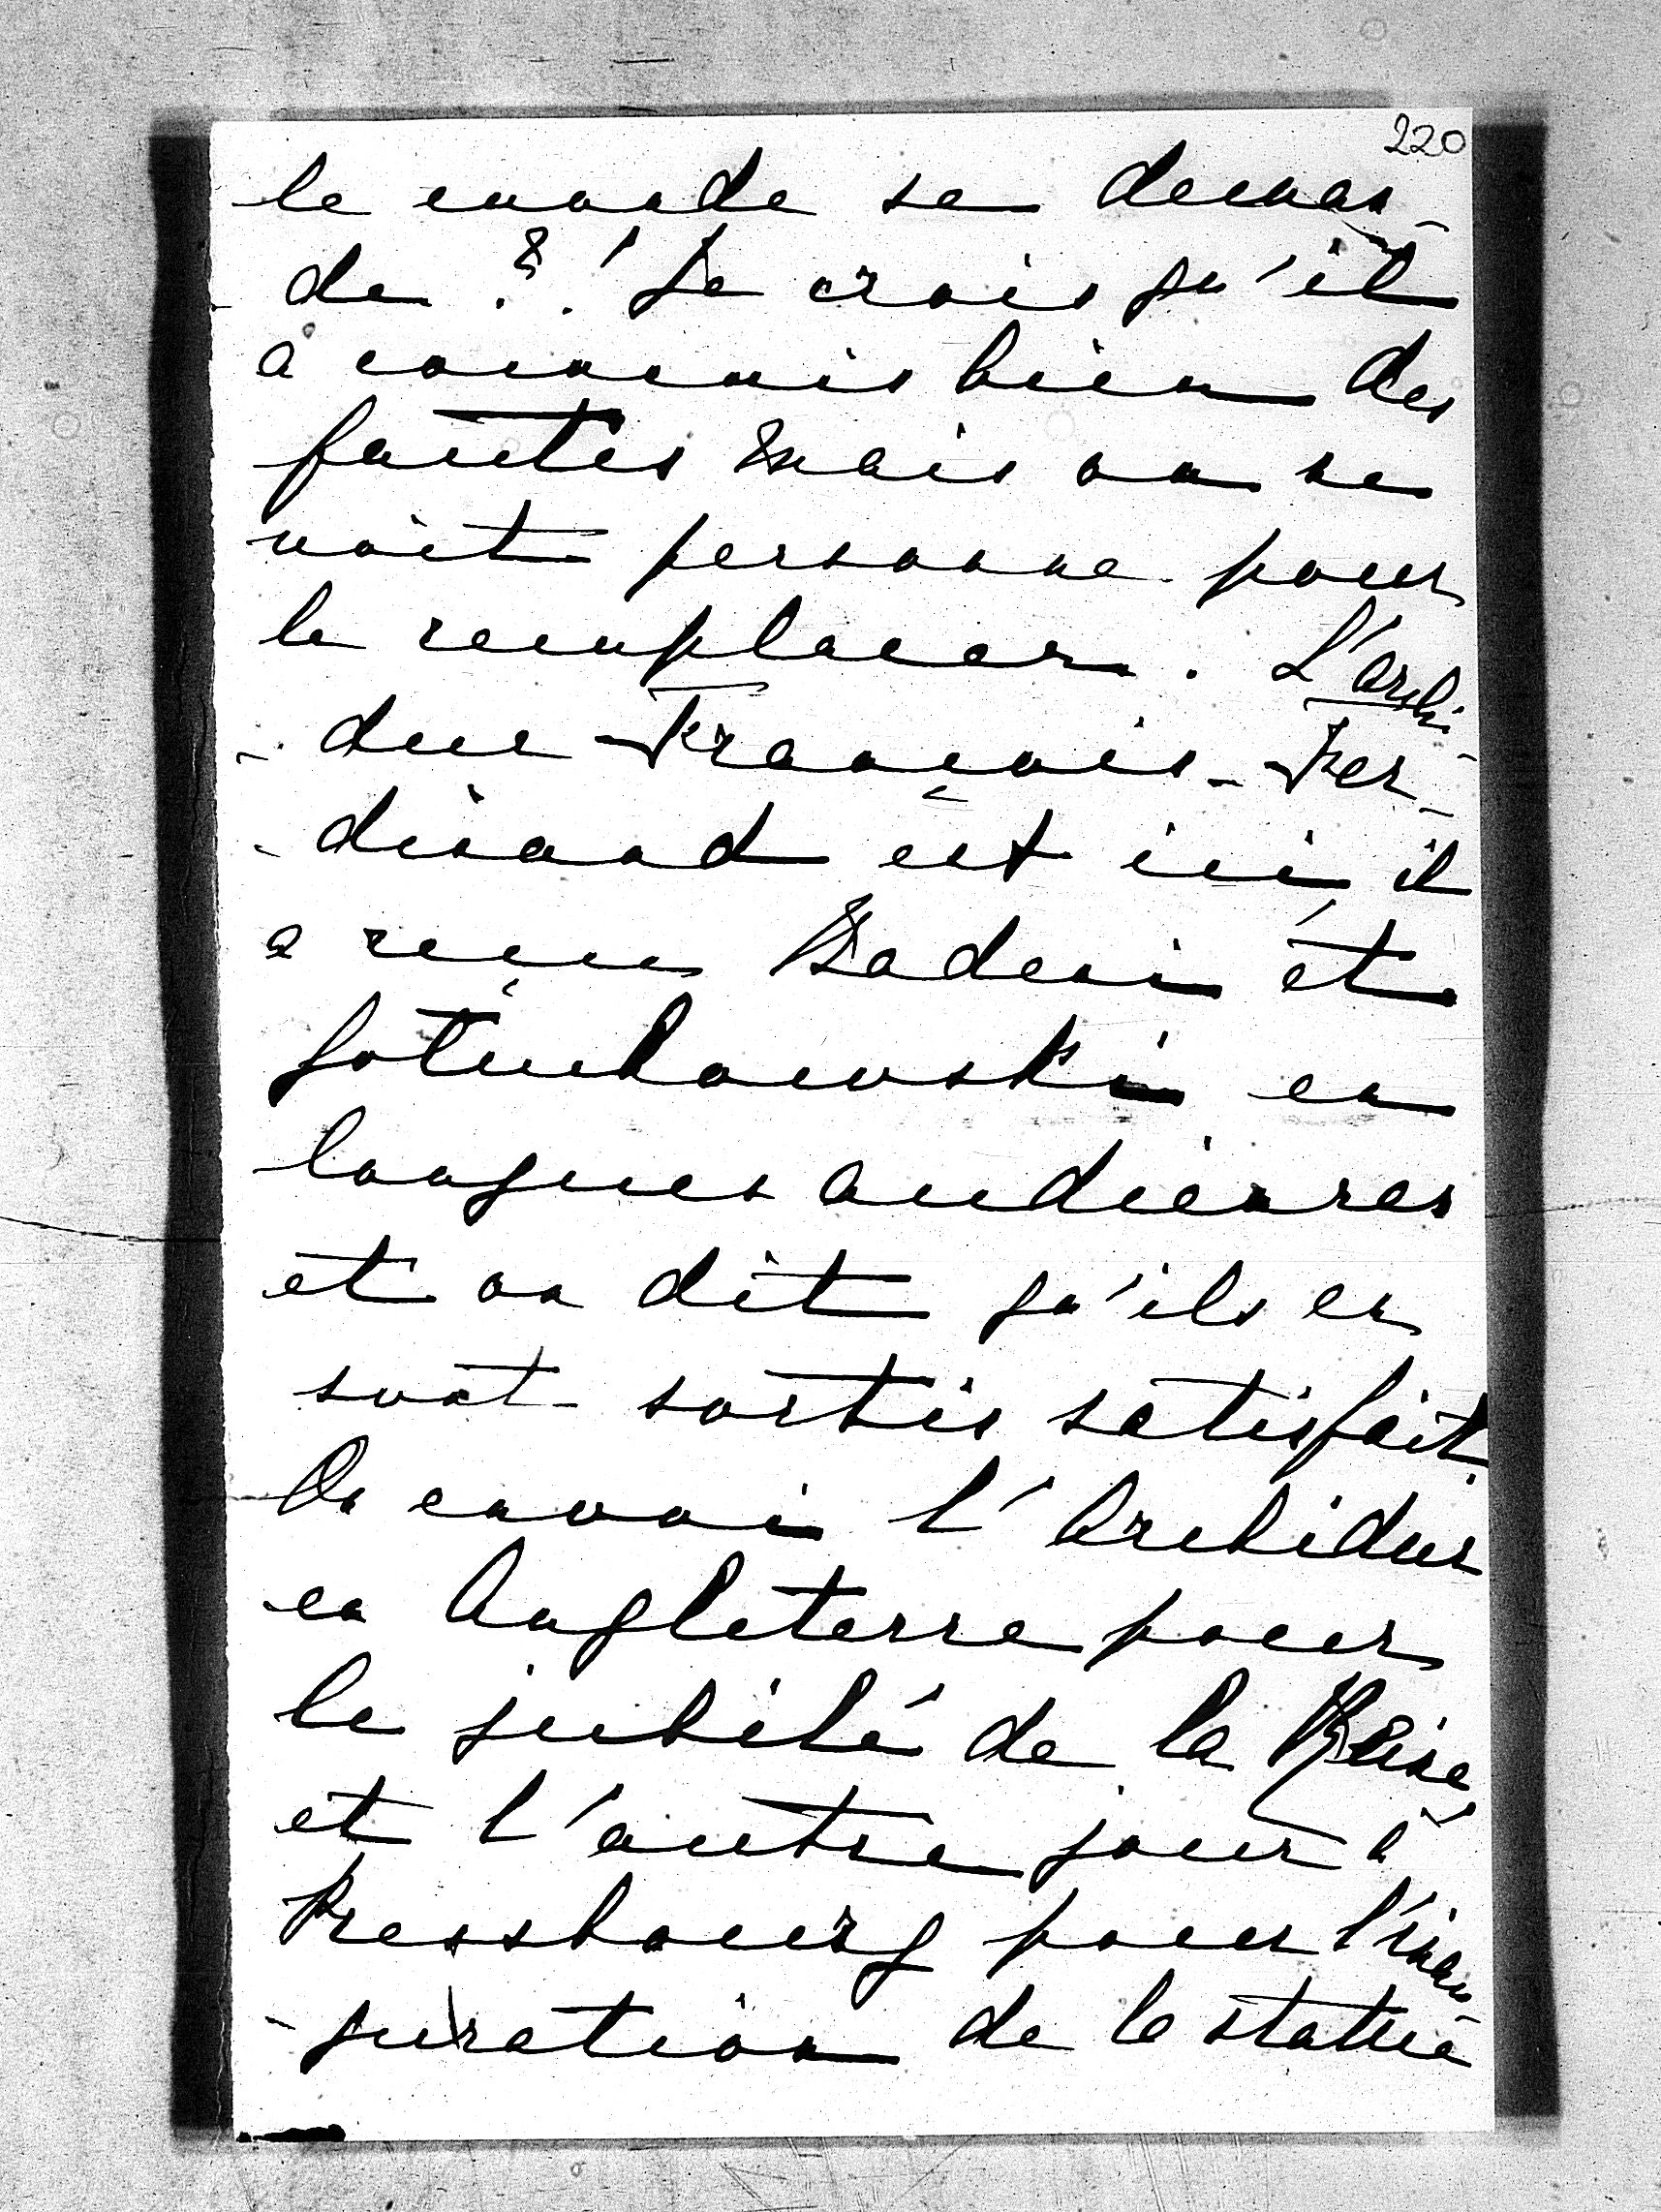 220
le monde se deman-
-de ?! Je crois qu'il
a commis bien des
fautes mais on ne
voit personne pour
le remplacer. L'archi-
-duc François-Fer-
-dinand est ici il
a reçu Badeni et
Goluchowski en
longues audiences
et on dit qu'ils en
sont sortis satisfait.
On envoi l'Archiduc
en Angleterre pour
le jubilé de la Reine
et l'autre jour à
Pressbourg pour l'inau
-guration de la statue